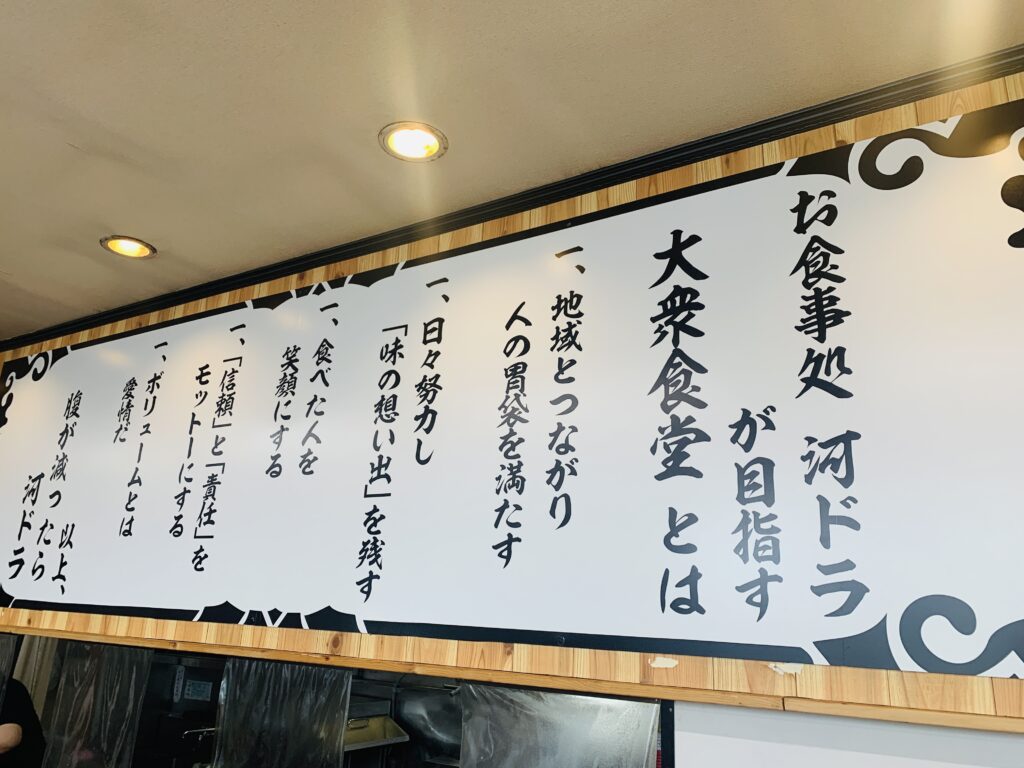 お食事処 河ドラ
が目指す
大衆食堂とは
一、地域とつながり
人の胃袋を満たす
一、日々努力し
「味の想い出」を残す
一、食べた人を
笑顔にする
一、「信頼」と「責任」を
モットーにする
一、ボリュームとは
愛情だ
以上、
腹が減ったら
河ドラ